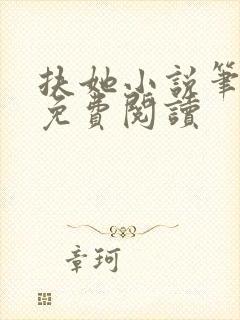 扶她小說筆
免費閱讀
章珂